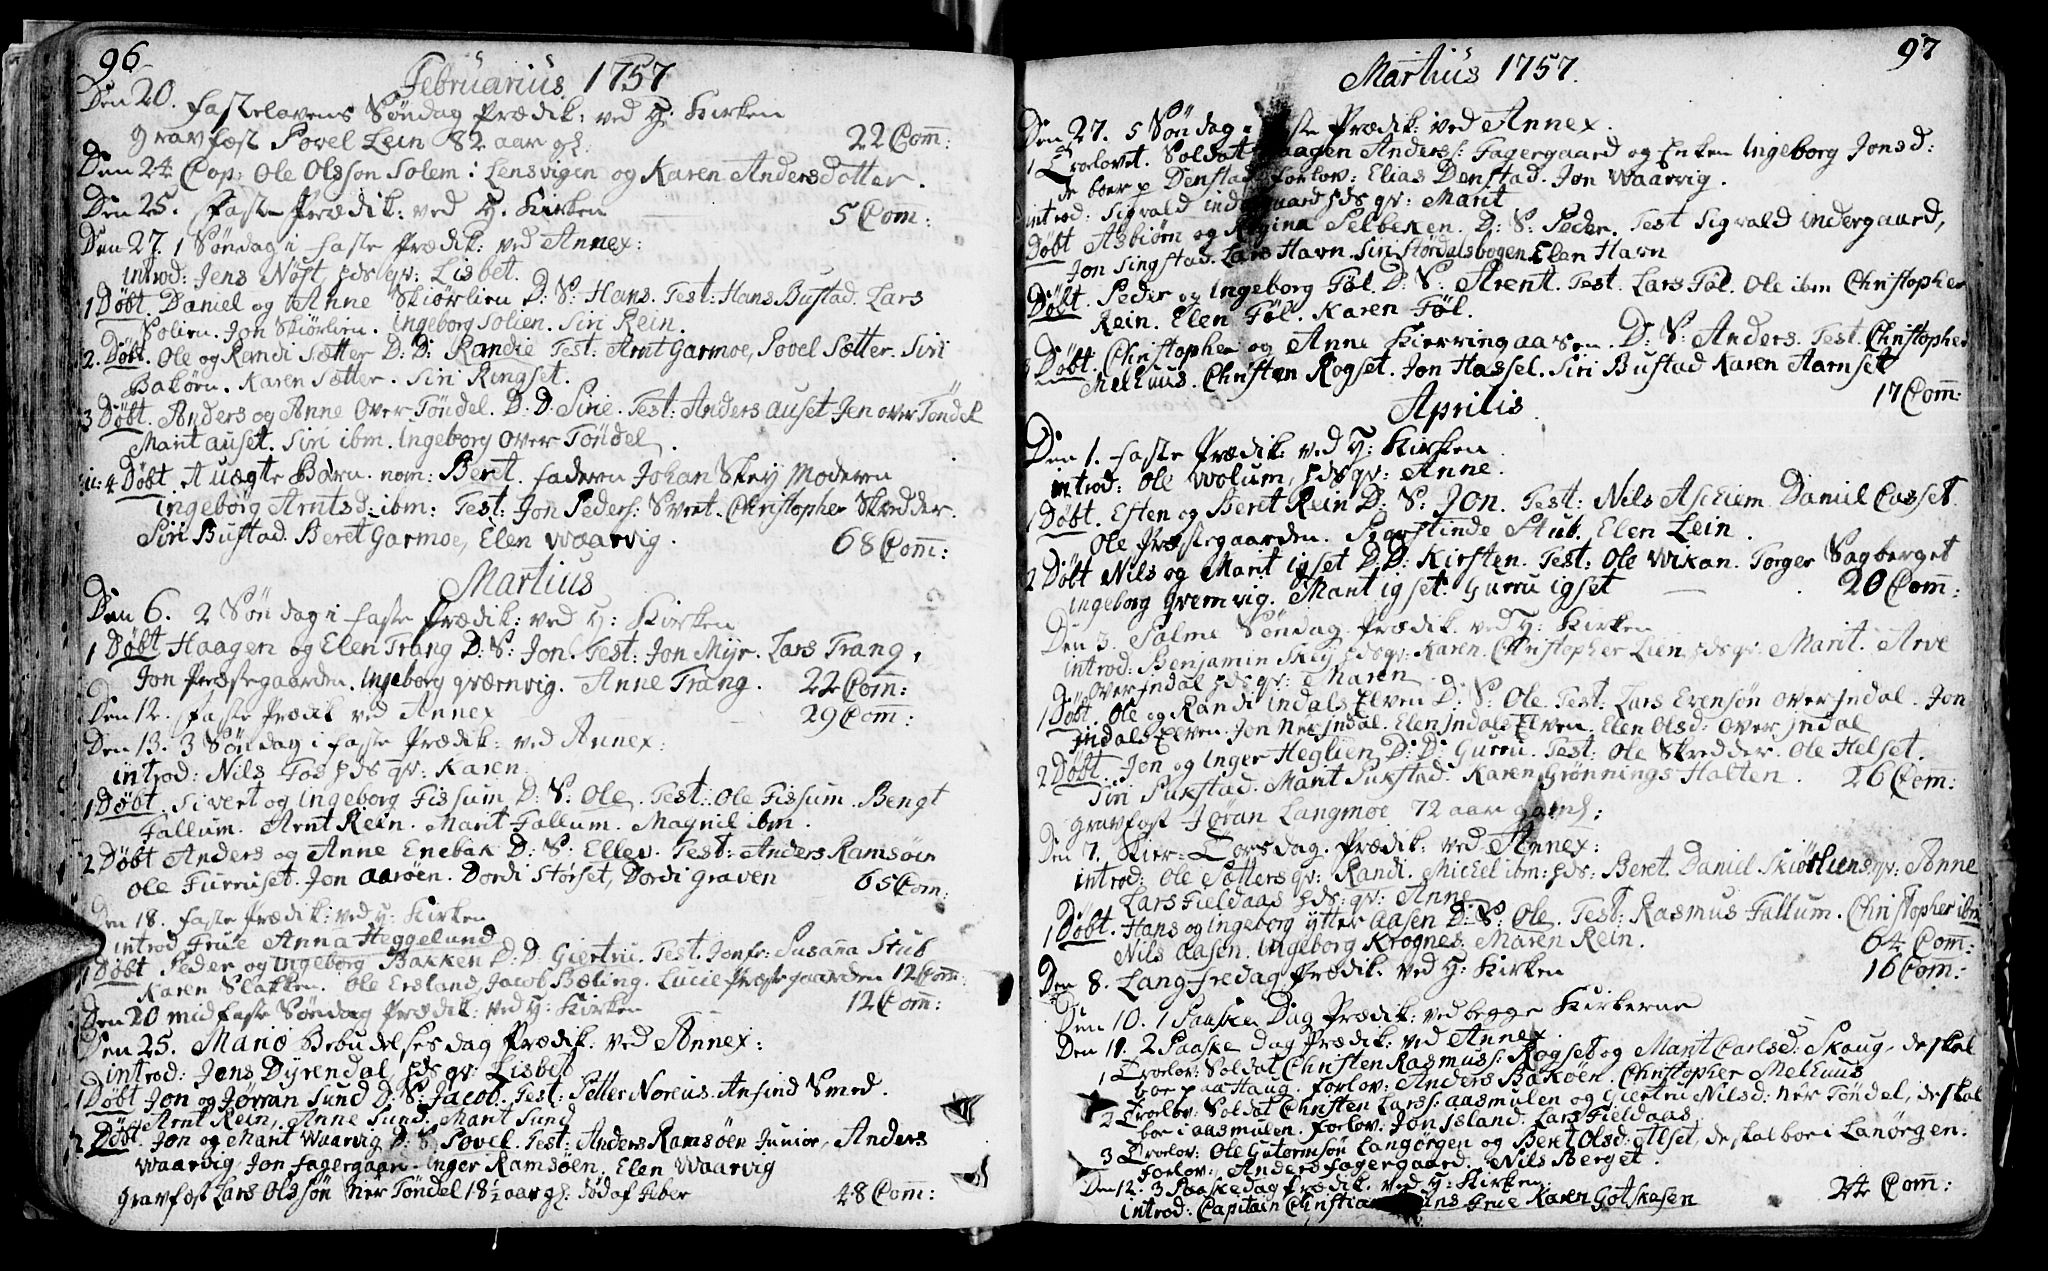 96
Februarius 1757
Den 20. Fastelavens Søndag Prædik: ved H: Kirken
gravfæst Povel Lein 82 aar gl. 22 Com:
Den 24 Cop: Ole Olsson Solem i Lensvigen og Karen Andersdotter.
Den 25. Faste Prædik: ved H. Kirken 5 Com:
Den 27. 1 Søndag i Faste Prædik: ved Annex:
introd: Jens Nøst hds qv: Lisbet.
1 Døbt. Daniel og Anne Skiørlien D: S: Hans. Test: Hans Bustad. Lars
Solien. Jon Skiørlien. Ingeborg Solien. Siri Rein.
2. Døbt. Ole og Randi Sætter D: D: Randie Test: Arnt Garmoe, Povel Sætter. Siri
Bakøen. Karen Sætter. Siri Ringset.
3 Døbt. Anders og Anne Over Tøndel. D: D: Sirie. Test: Anders Auset Jen over Tøndel
Marit Auset. Siri ibm. Ingeborg Over Tøndel.
4 Døbt. et uægte Barn. nom: Beret. Faderen Johan Skey Moderen
Ingeborg Arntsd: ibm: Test: Jon Peders: Svert. Christopher Skredder.
Siri Bustad. Beret Garmoe, Elen Waarvig. 68 Com:
Martius
Den 6. 2 Søndag i Faste Prædik: ved H: Kirken
1 Døbt Haagen og Elen Trang D: S: Jon. Test: Jon Myr. Lars Trang,
Jon Præstegaarden. Ingeborg Qværnvig. Anne Trang. 22 Com:
Den 12. Faste Prædik ved Annex 29 Com:
Den 13. 3 Søndag i Faste Prædik: ved Annex:
introd: Nils Fos hds qv: Karen
1 Døbt. Sivert og Ingeborg Fissum D: S: Ole. Test: Ole Fissum. Bengt
Fallum. Arnt Rein. Marit Fallum. Magnil ibm.
2 Døbt Anders og Anne Enebak D: S: Ellev. Test: Anders Ramsøen
Ole Furruset. Jon Aarøen. Dordi Størset, Dordi Graven 65 Com:
Den 18. Faste Prædik: ved H: Kirken
introd Frue Anna Heggelund
1 Døbt Peder og Ingeborg Bakken D: D: Giertru. Test. Jonfr: Susanna Stub
Karen Slatten. Ole Ersland, Jacob Bæling. Lucie Præstegaarden 12 Com:
Den 20 midfaste Søndag Prædik: ved H: Kirken 12 Com:
Den 25. Mariæ Bebudelses dag Prædik. ved Annex:
introd: Jens Dyrendal, hds qv: Lisbet
1 Døbt Jon og Jørran Sund D: S: Jacob. Test: Petter Norius. Ansind Smed.
Arnt Rein, Anne Sund, Marit Sund
2 Døbt. Jon og Marit Waarvig D: S: Povel. Test: Anders Ramsøen Junior, Anders
Waarvig, Jon Fagergaar. Inger Ramsøen. Elen Waarvig
gravfæst Lars Oldsøn Nér Tøndel 18½ aar gl: død af Feber 48 Com:
97
Martius 1757.
Den 27. 5 Søndag i Faste Prædik: ved Annex.
1 Trolovet. Soldat Haagen Anderss: Fagergaard og Enken Ingeborg Jonsd:
de boer p Denstad. Forlov: Elias Denstad. Jon Waarvig.
introd: Sigvald Indergaard hds qv: Marit
Døbt Asbiørn og Regina Selbeken. D: S: Peder. Test Sigvald Indergaard,
Jon Singstad. Lars Havn. Siri Stordalsbogen Elen Havn
Døbt. Peder og Ingeborg Føl. D: S: Arent. Test. Lars Føl. Ole ibm Christopher
Rein. Elen Føl. Karen Føl.
Døbt. Christopher og Anne Kierringaasen. D: S: Anders. Test. Christopher
Melhuus. Christen Rogset. Jon Hassel. Siri Bustad Karen Aarnset
17 Com:
Aprilis
Den 1. Faste Prædik: ved H: Kirken
introd: Ole Wolum, hds qv: Anne.
1 Døbt. Esten og Beret Rein D: S: Jon. Test: Nils Aschem Daniel Casset
Ole Præstegaarden. Stub. Elen Lein.
2 Døbt Nils og Marit Igset D: D: Kirsten. Test: Ole Wikan. Torger Sagberget
Ingeborg Qvernvig. Marit Igset. Gurru Igset 20 Com:
Den 3. Palme Søndag Prædik. ved H: Kirken
introd: Benjamin Skey hds qv: Karen. Christopher Lien hds qv: Marit. Arve
Over Indal hds qv: Maren
1 Døbt. Ole og Randi Indals Elven D: S: Ole. Test: Lars Evensøn Over Indal. Jon
Indals Elven. Jon Nér Indal. Elen Indals Elven. Elen Olsd: Over Indal
2 Døbt. Jon og Inger Heglien D: D: Gurru. Test: Ole Skredder. Ole Helset.
Siri Sukstad. Marit Sukstad. Karen Grønnings Halten. 26 Com:
gravfæst Jøran Langmoe 72 aar gaml:
Den 7. Skier-Torsdag. Prædik: ved Annex:
introd: Ole Sætters qv: Randi. Michel ibm: hds: Beret. Daniel Skiørliens qv: Anne
Lars Fieldaas hds: qv: Anne
1 Døbt. Hans og Ingeborg Ytter Aasen D: S: Ole. Test: Rasmus Fallum. Christopher ibm
Nils Aasen. Ingeborg Krognes. Maren Rein. 64 Com:
Den 8. Langfredag Prædik: ved H: Kirken 16 Com:
Den 10. 1 Paaske Dag Prædik: ved begge Kirkerne
Den 11. 2 Paaske Dag Prædik: ved Annex.
1 Trolov: Soldat Christen Rasmuss: Rogset og Marit Carlsd: Skaug, de skal
boe p aa Haug. Forlov: Anders Bakøen. Christopher Melhuus
2 Trolov: Soldat Christen Larss: Aasmulen og Giertru Nilsd: Nér Tøndel, de skal
boe i Aasmulen. Forlov: Jon Island. Lars Fieldaas
3 Trolov: Ole Gutormsøn Langørgen og Beret Olsd: Alset, de skal boe i Lanørgen:
Forlov: Anders Fagergaard. Nils Berget.
Den 12. 3 Paaskedag Prædik. ved H: Kirken:
introd: Capitain Christian Frue Karen Gotskasen 24 Com: